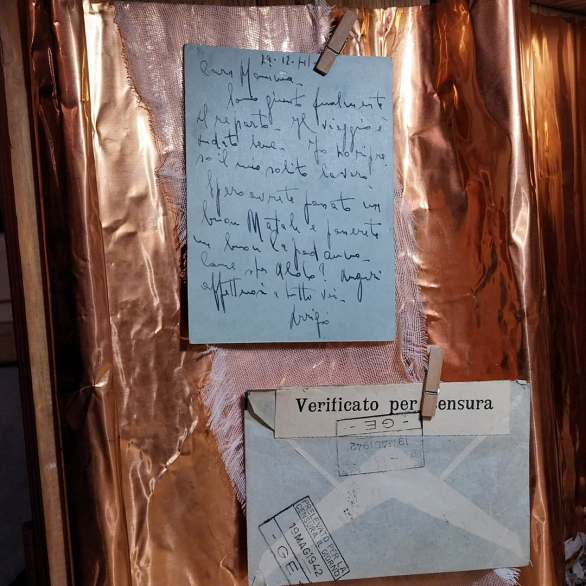 29.12.41
Cara Mamma
Sono giunto finalmente
al reparto. Il viaggio è
andato bene. Io ho ripre
so il mio solito lavoro
Spero avrete passato un
buon Natale e passerete
un buon Capodanno.
Come sta Aldo? Auguri
affettuosi a tutti voi.
Arrigo
Verificato per censura
- GE -
19 MAG 1942
PRELEVATO PER LA
CENSURA IL GIORNO
19 MAG 1942
- GE -